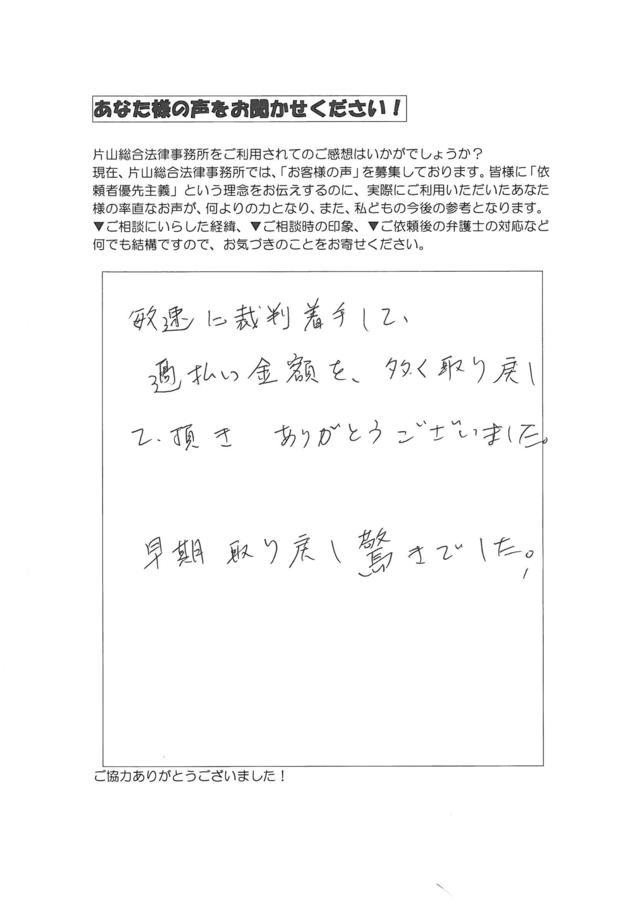 あなた様の声をお聞かせください！
片山総合法律事務所をご利用されてのご感想はいかがでしょうか？
現在、片山総合法律事務所では、「お客様の声」を募集しております。皆様に「依
頼者優先主義」という理念をお伝えするのに、実際にご利用いただいたあなた
様の率直なお声が、何よりの力となり、また、私どもの今後の参考となります。
▼ご相談にいらした経緯、▼ご相談時の印象、▼ご依頼後の弁護士の対応など
何でも結構ですので、お気づきのことをお寄せください。
敏速に裁判着手して、
過払い金額を、多く取り戻し
て、頂き ありがとうございました。
早期取り戻し驚きでした。
ご協力ありがとうございました！